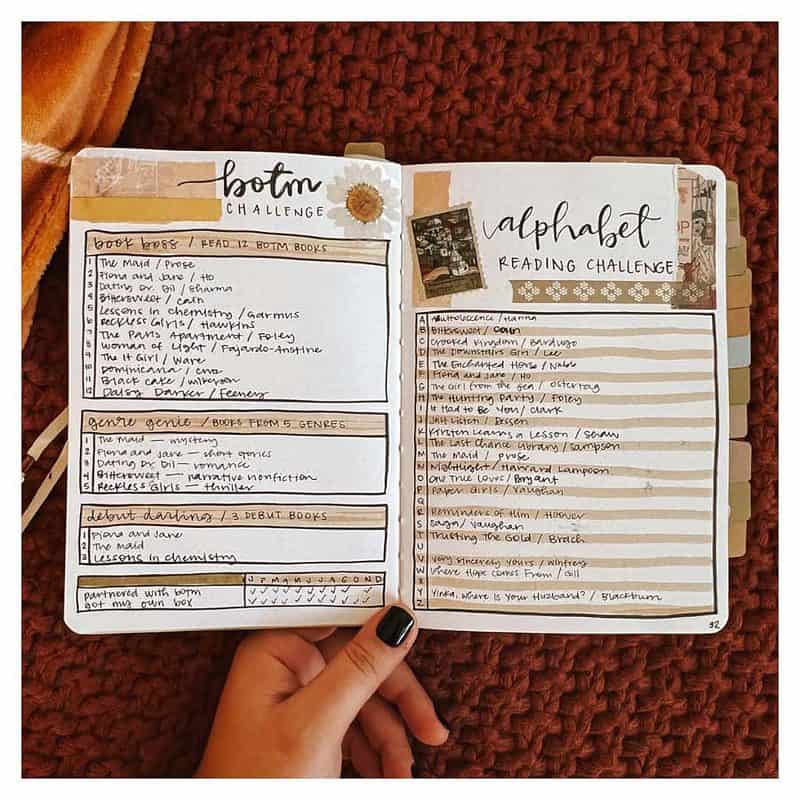 botm
CHALLENGE
book boss / READ 12 BOTM BOOKS
1 The Maid / Prose
2 Fiona and Jane / Ho
3 Dating Dr. Dil / Sharma
4 Bittersweet / Cain
5 Lessons in Chemistry / Garmus
6 Reckless Girls / Hawkins
7 The Paris Apartment / Foley
8 Woman of Light / Fajardo-Anstine
9 The It Girl / Ware
10 Dominicana / Cruz
11 Black Cake / Wilkerson
12 Daisy Darker / Feeney
genre genie / BOOKS FROM 5 GENRES
1 The Maid — mystery
2 Fiona and Jane — short stories
3 Dating Dr. Dil — romance
4 Bittersweet — narrative nonfiction
5 Reckless Girls — thriller
debut darling / 3 DEBUT BOOKS
1 Fiona and Jane
2 The Maid
3 Lessons in Chemistry
J F M A M J J A S O N D
partnered with botm
got my own box
alphabet
READING CHALLENGE
A / Hanna
B Bittersweet / Cain
C Crooked Kingdom / Bardugo
D The Downstairs Girl / Lee
E The Enchanted Horse / Nabb
F Fiona and Jane / Ho
G The Girl from the Sea / Ostertag
H The Hunting Party / Foley
I It Had to Be You / Clark
J Just Listen / Dessen
K Kirsten Learns a Lesson / Shaw
L The Last Chance Library / Sampson
M The Maid / Prose
N Nightlight / Harvard Lampoon
O One True Loves / Bryant
P Paper Girls / Vaughan
Q
R Reminders of Him / Hoover
S Saga / Vaughan
T Trusting the Gold / Brach
U
V Very Sincerely Yours / Winfrey
W Where Hope Comes From / Gill
X
Y Yinka, Where Is Your Husband? / Blackburn
Z
32